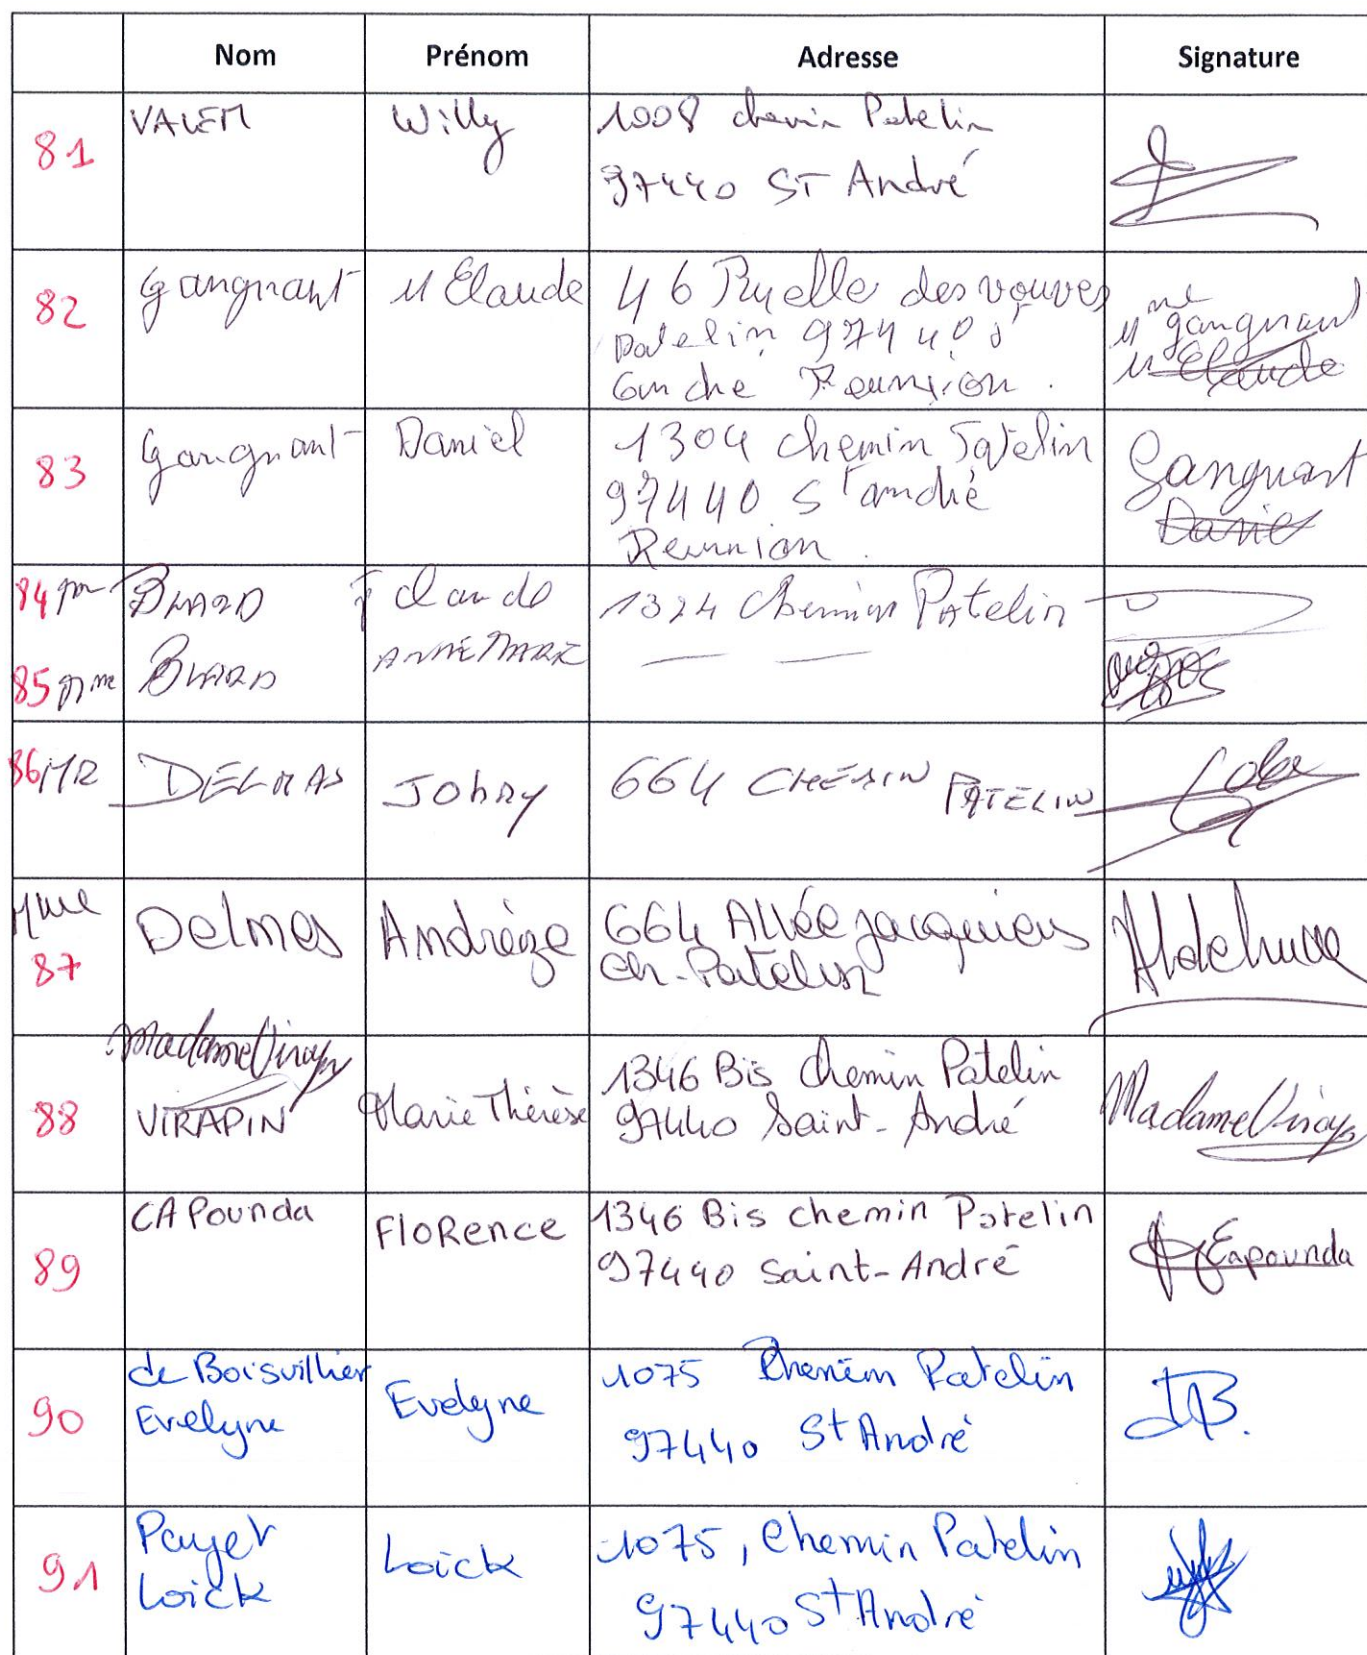 Nom Prénom Adresse Signature
81 VALEM Willy 1008 chemin Patelin
97440 ST André
82 gangnant M Claude 46 Ruelle des vouves
Patelin 97440 St
André Reunion.
Mme gangnant
M Claude
83 Gangnant Daniel 1304 chemin Patelin
97440 St André
Reunion.
Gangnant
Daniel
84 BLARD J Claude 1324 Chemin Patelin
85 Mme BLARD ANNE MARIE — —
86 MR DELMAS Johny 664 CHEMIN PATELIN
Mme
87 Delmas Andrèze 664 Allée jacquiers
Ch. Patelin
Madame Virapin
88 VIRAPIN Marie Thérèse 1346 Bis Chemin Patelin
97440 Saint-André
Madame Virapin
89 CAPounda FloRence 1346 Bis chemin Patelin
97440 Saint-André
Capounda
90 de Boisvillier
Evelyne
Evelyne
1075 Chemin Patelin
97440 St André
DB.
91 Payet
Loïck
Loïck
1075, Chemin Patelin
97440 St André